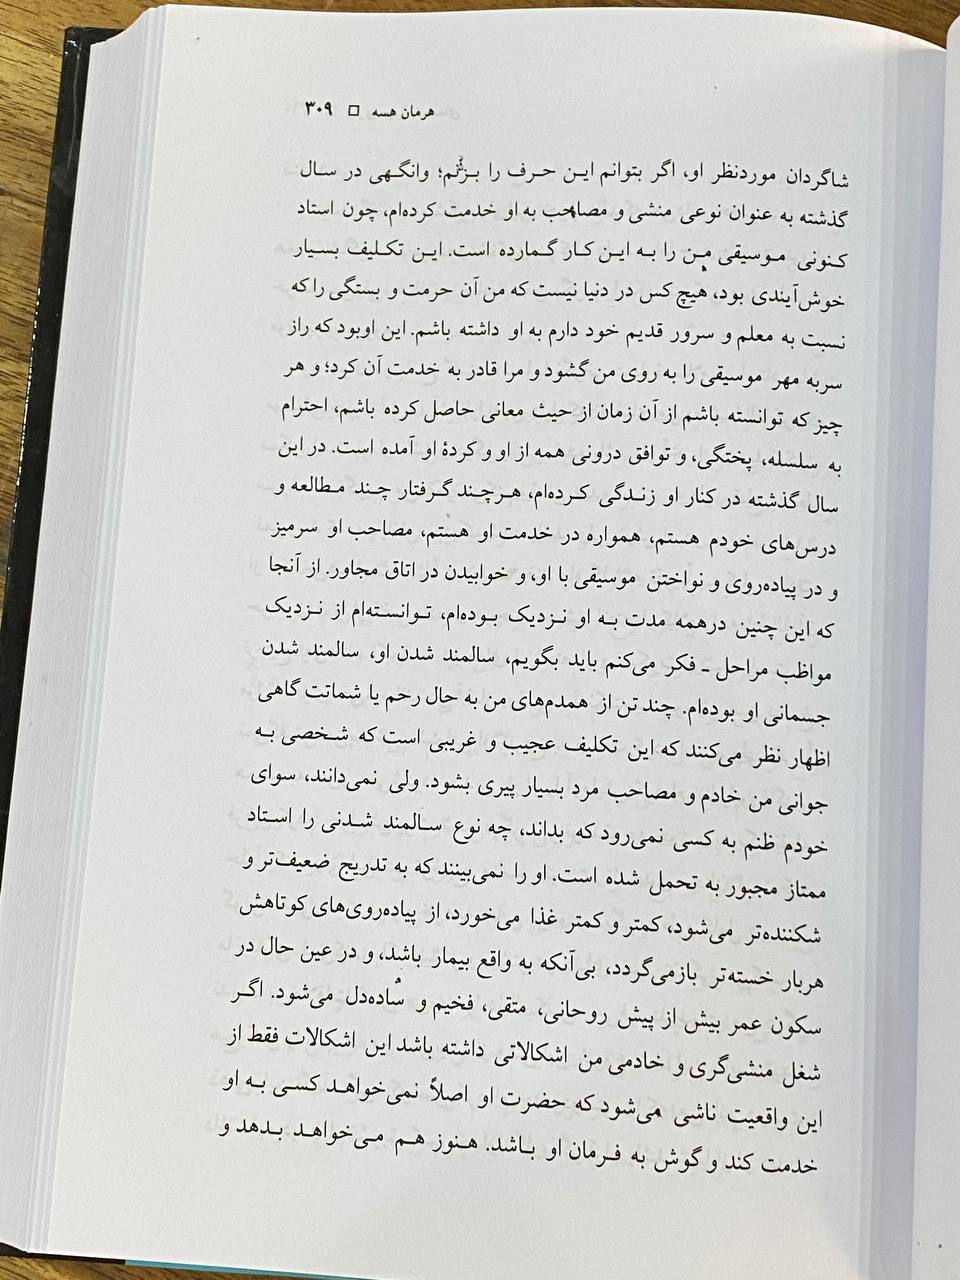 هرمان هسه □ ۳۰۹
شاگردان موردنظر او، اگر بتوانم این حرف را بزنم؛ وانگهی در سال
گذشته به عنوان نوعی منشی و مصاحب به او خدمت کرده‌ام، چون استاد
کنونی موسیقی من را به این کار گمارده است. این تکلیف بسیار
خوش‌آیندی بود، هیچ کس در دنیا نیست که من آن حرمت و بستگی را که
نسبت به معلم و سرور قدیم خود دارم به او داشته باشم. این اوبود که راز
سربه مهر موسیقی را به روی من گشود و مرا قادر به خدمت آن کرد؛ و هر
چیز که توانسته باشم از آن زمان از حیث معانی حاصل کرده باشم، احترام
به سلسله، پختگی، و توافق درونی همه از او و کردهٔ او آمده است. در این
سال گذشته در کنار او زندگی کرده‌ام، هرچند گرفتار چند مطالعه و
درس‌های خودم هستم، همواره در خدمت او هستم، مصاحب او سرمیز
و در پیاده‌روی و نواختن موسیقی با او، و خوابیدن در اتاق مجاور. از آنجا
که این چنین درهمه مدت به او نزدیک بوده‌ام، توانسته‌ام از نزدیک
مواظب مراحل ـ فکر می‌کنم باید بگویم، سالمند شدن او، سالمند شدن
جسمانی او بوده‌ام. چند تن از همدم‌های من به حال رحم یا شماتت گاهی
اظهار نظر می‌کنند که این تکلیف عجیب و غریبی است که شخصی به
جوانی من خادم و مصاحب مرد بسیار پیری بشود. ولی نمی‌دانند، سوای
خودم ظنم به کسی نمی‌رود که بداند، چه نوع سالمند شدنی را استاد
ممتاز مجبور به تحمل شده است. او را نمی‌بینند که به تدریج ضعیف‌تر و
شکننده‌تر می‌شود، کمتر و کمتر غذا می‌خورد، از پیاده‌روی‌های کوتاهش
هربار خسته‌تر بازمی‌گردد، بی‌آنکه به واقع بیمار باشد، و در عین حال در
سکون عمر بیش از پیش روحانی، متقی، فخیم و ساده‌دل می‌شود. اگر
شغل منشی‌گری و خادمی من اشکالاتی داشته باشد این اشکالات فقط از
این واقعیت ناشی می‌شود که حضرت او اصلاً نمی‌خواهد کسی به او
خدمت کند و گوش به فرمان او باشد. هنوز هم می‌خواهد بدهد و